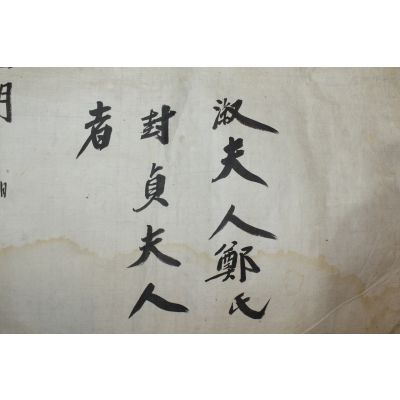 淑夫人鄭氏
封貞夫人
者